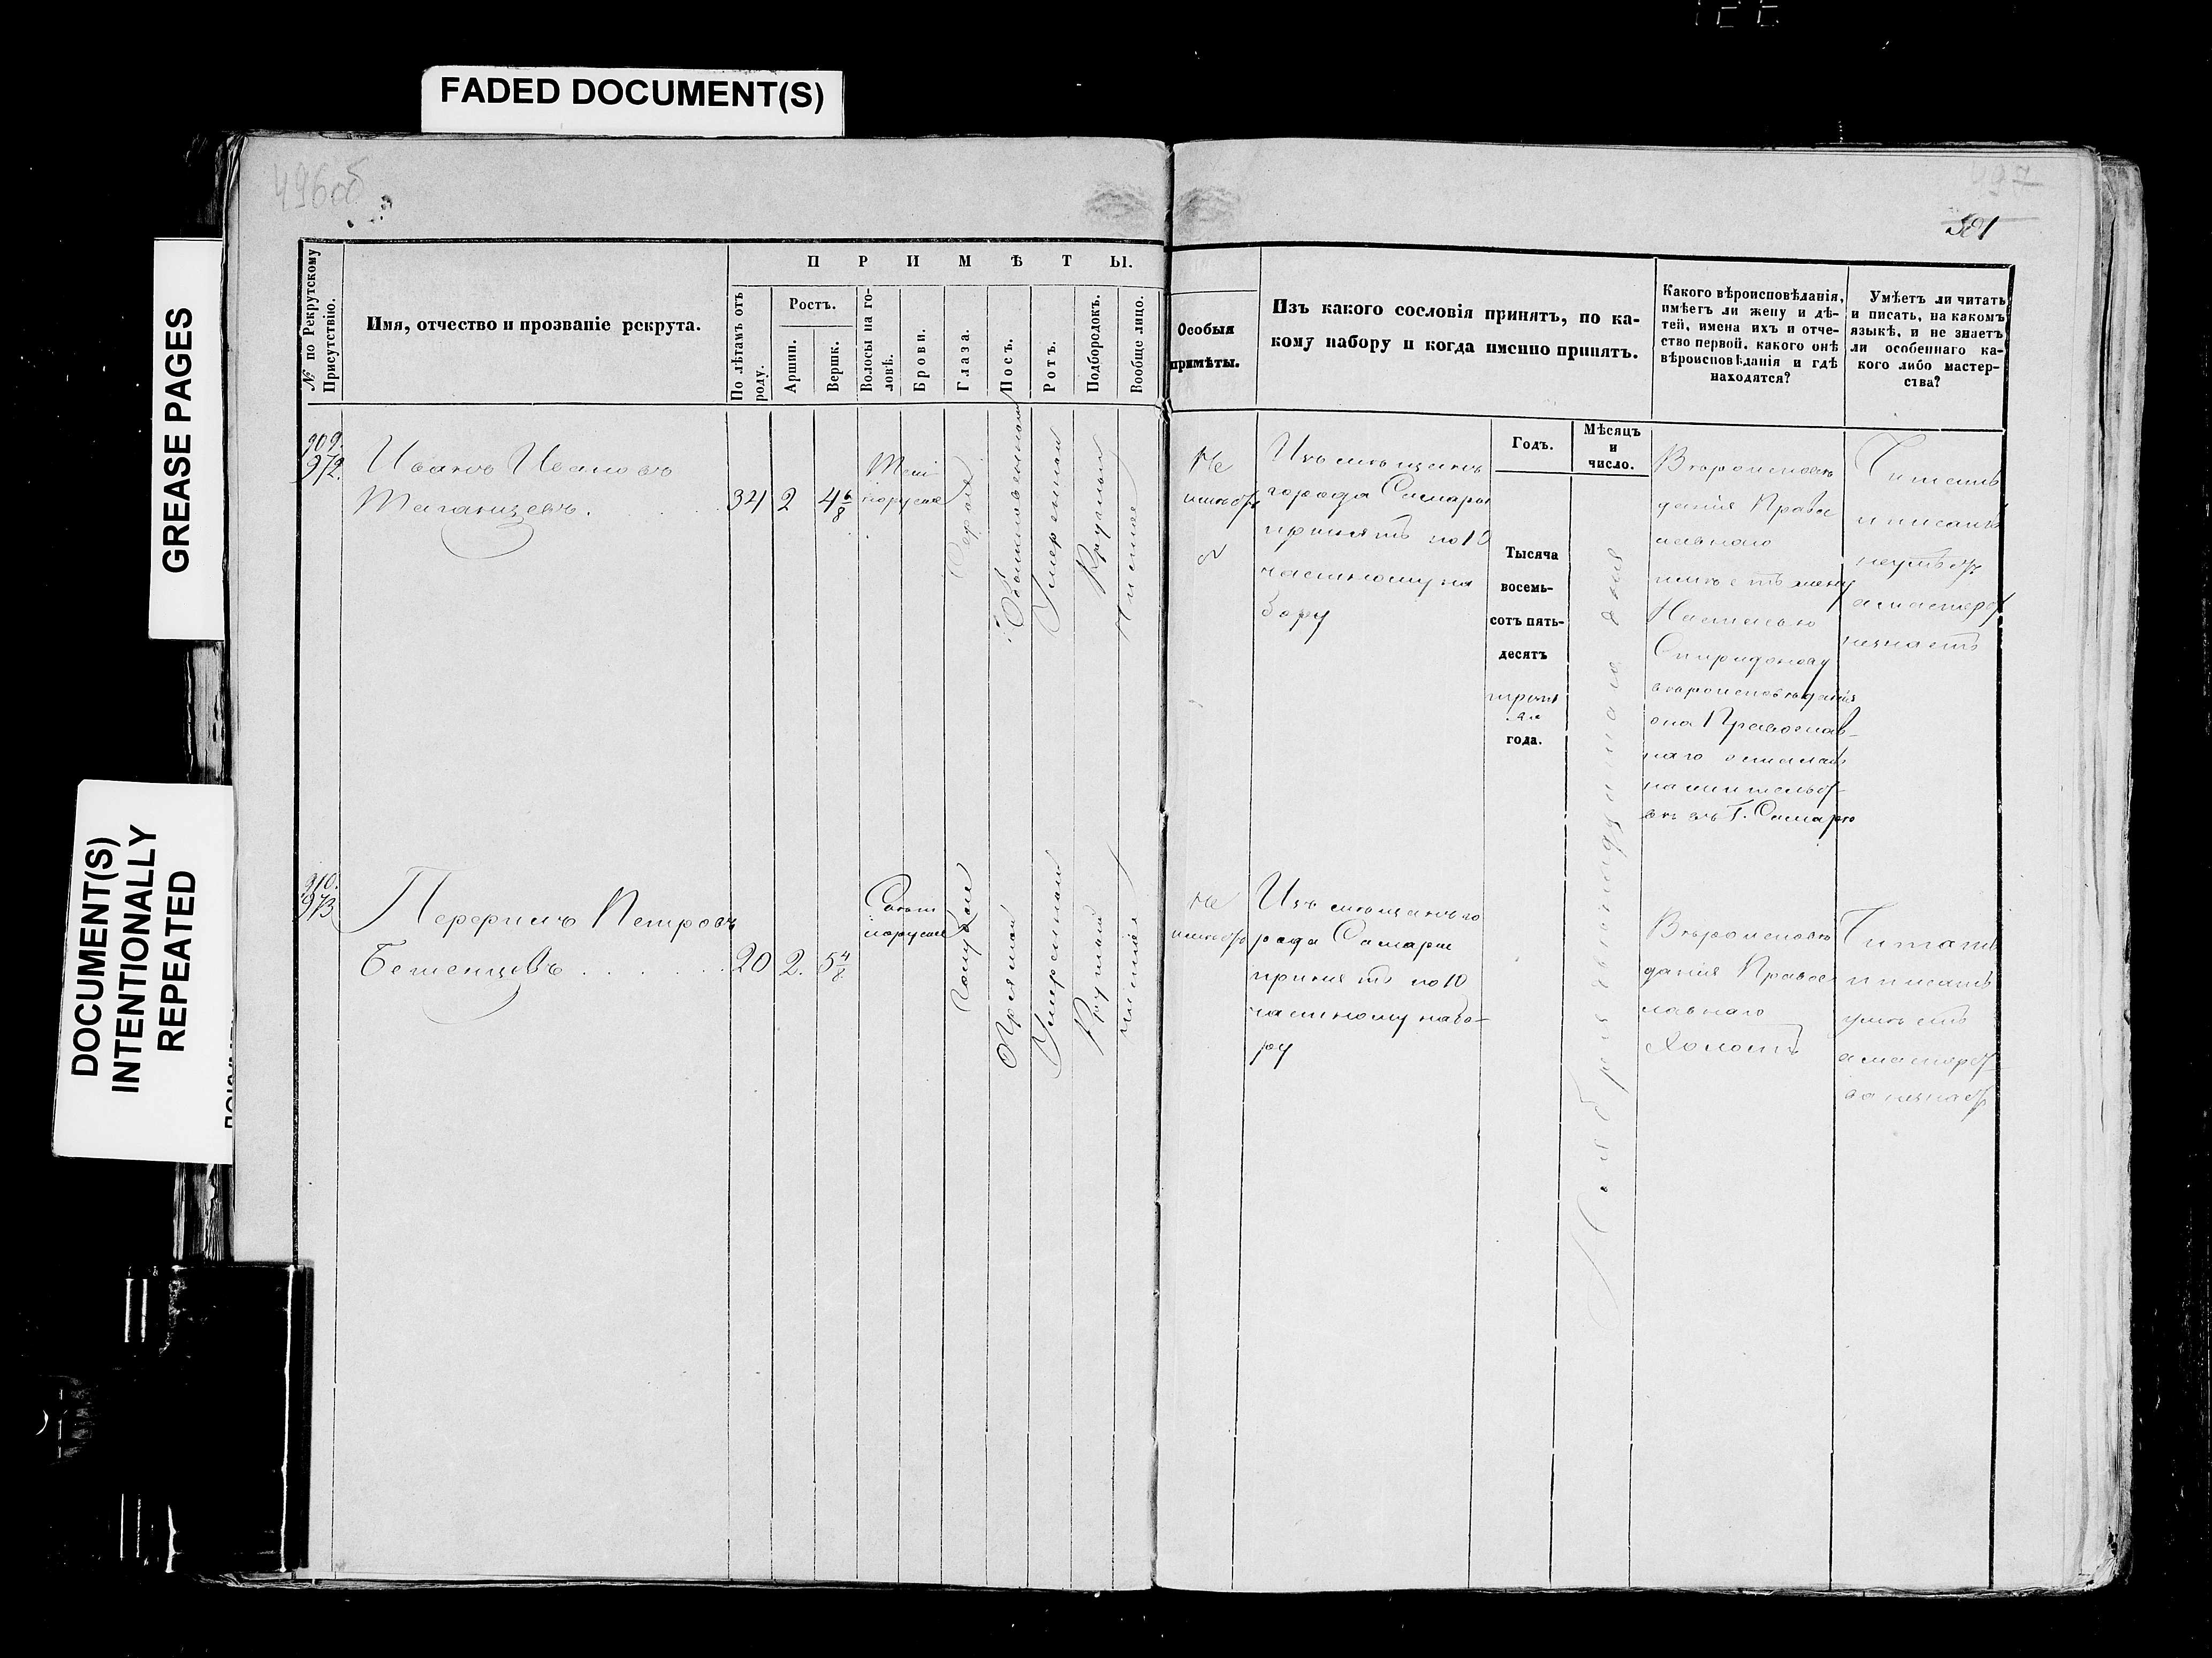 FADED DOCUMENT(S)
GREASE PAGES
DOCUMENT(S)
INTENTIONALLY
REPEATED
496об
497
501
№ по Рекрутскому
Присутствію.
Имя, отчество и прозваніе рекрута.
ПРИМѢТЫ.
По лѣтамъ отъ
роду.
Ростъ.
Аршин.
Вершк.
Волосы на го-
ловѣ.
Брови.
Глаза.
Носъ.
Ротъ.
Подбородокъ.
Вообще лицо.
Особыя
примѣты.
Изъ какого сословія принятъ, по ка-
кому набору и когда именно принятъ.
Какого вѣроисповѣданія,
имѣетъ ли жену и дѣ-
тей, имена ихъ и отче-
ство первой, какого онѣ
вѣроисповѣданія и гдѣ
находятся?
Умѣетъ ли читать
и писать, на какомъ
языкѣ, и не знаетъ
ли особеннаго ка-
кого либо мастер-
ства?
Годъ.
Мѣсяцъ
и
число.
909.
972.
Иванъ Ивановъ
34
2
4 6/8
Темно
русые
Сѣрые
Обыкновенный
Умеренный
Круглый
Чистое
Не
имѣетъ
Изъ мѣщанъ
города Самары
принятъ по 10
частному на
бору
Тысяча
восемь-
сотъ пять-
десятъ
года.
Ноября двенадцатаго дня
Вѣроисповѣ
данія Правос
лавнаго
имѣетъ жену
Настасью
Спиридонову
вѣроисповѣданія
она Православ-
наго осталась
на жительст
вѣ въ Г. Самарѣ
Читать
и писать
неумѣетъ
а мастерст
незнаетъ
910.
973
Перфилъ Петровъ
20
2.
5 4/8
Свѣтло
русые
Голубые
Прямой
Умеренный
Круглый
Чистое
Не
имѣетъ
Изъ мѣщанъ го
рода Самары
принятъ по 10
частному набо-
ру
Вѣроисповѣ
данія Правос
лавнаго
Холостъ
Читать
и писать
умѣетъ
а мастерст
ва незнаетъ